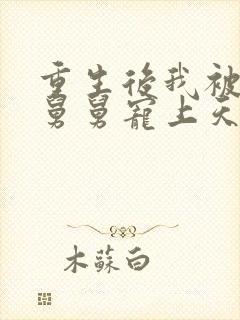 重生後我被
舅舅寵上天
木蘇白